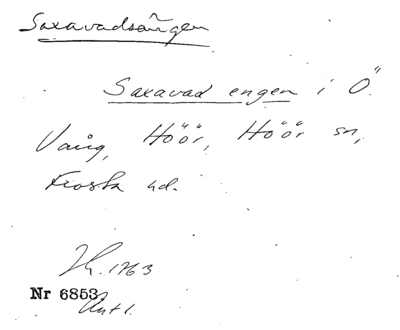 Saxavadsängen
Saxavad engen i Ö.
Vång, Höör, Höör sn,
Frosta hd.
1763
Nr 6853